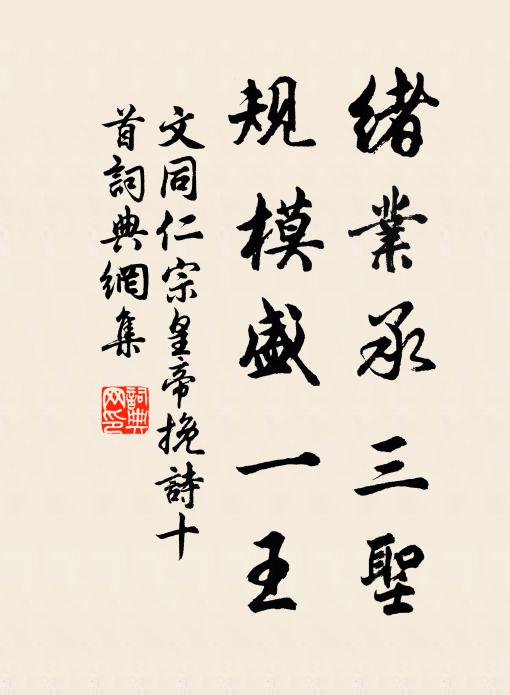 緒業承三聖
規模盛一王
文同仁宗皇帝挽詩十
首詞典網集
詞典
网印